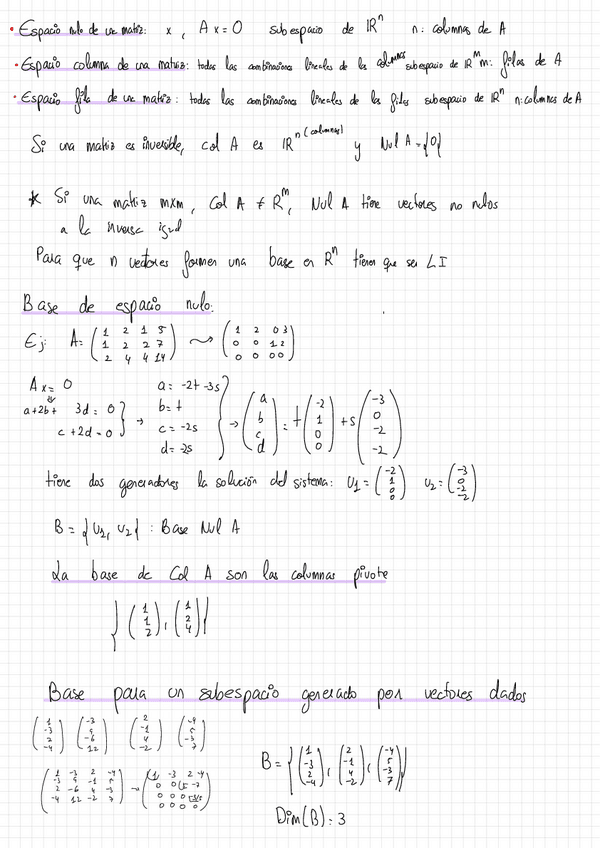 • Espacio nulo de una matriz: x, Ax=0 subespacio de ℝⁿ n: columnas de A
• Espacio columna de una matriz: todas las combinaciones lineales de las columnas subespacio de ℝᵐ m: filas de A
• Espacio fila de una matriz: todas las combinaciones lineales de las filas subespacio de ℝⁿ n: columnas de A
Si una matriz es inversible, col A es ℝⁿ (columnas) y Nul A = {0}
* Si una matriz mxm, Col A ≠ ℝᵐ, Nul A tiene vectores no nulos
a la inversa igual
Para que n vectores formen una base en ℝⁿ tienen que ser LI
Base de espacio nulo:
Ej: A = (1 2 1 5; 1 2 2 7; 2 4 4 14) ~> (1 2 0 3; 0 0 1 2; 0 0 0 0)
Ax = 0
a+2b+ 3d = 0
c+2d = 0
→ a = -2t -3s
b = t
c = -2s
d = -2s
→ (a b c d) = t (-2 1 0 0) + s (-3 0 -2 -2)
tiene dos generadores la solución del sistema: U₁ = (-2 1 0 0) U₂ = (-3 0 -2 -2)
B = {U₁, U₂} : Base Nul A
La base de Col A son las columnas pivote
{(1 1 2), (1 2 4)}
Base para un subespacio generado por vectores dados
(1 -3 2 -4) (-3 9 -6 12) (2 -1 4 -2) (-4 5 -3 7)
(1 -3 2 -4; -3 9 -1 5; 2 -6 4 -3; -4 12 -2 7) → (1 -3 2 -4; 0 0 5 -7; 0 0 0 5; 0 0 0 0)
B = {(1 -3 2 -4), (2 -1 4 -2), (-4 5 -3 7)}
Dim(B) = 3